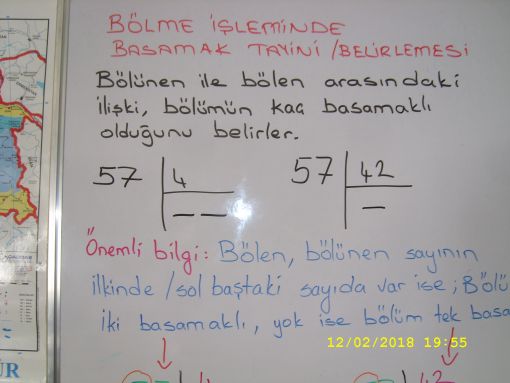 BÖLME İŞLEMİNDE
BASAMAK TAYİNİ /BELİRLEMESİ
Bölünen ile bölen arasındaki
ilişki, bölümün kaç basamaklı
olduğunu belirler.
57 4
57 42
Önemli bilgi: Bölen, bölünen sayının
ilkinde /sol baştaki sayıda var ise; Bölü
iki basamaklı, yok ise bölüm tek basa
12/02/2018 19:55
42
ÜR